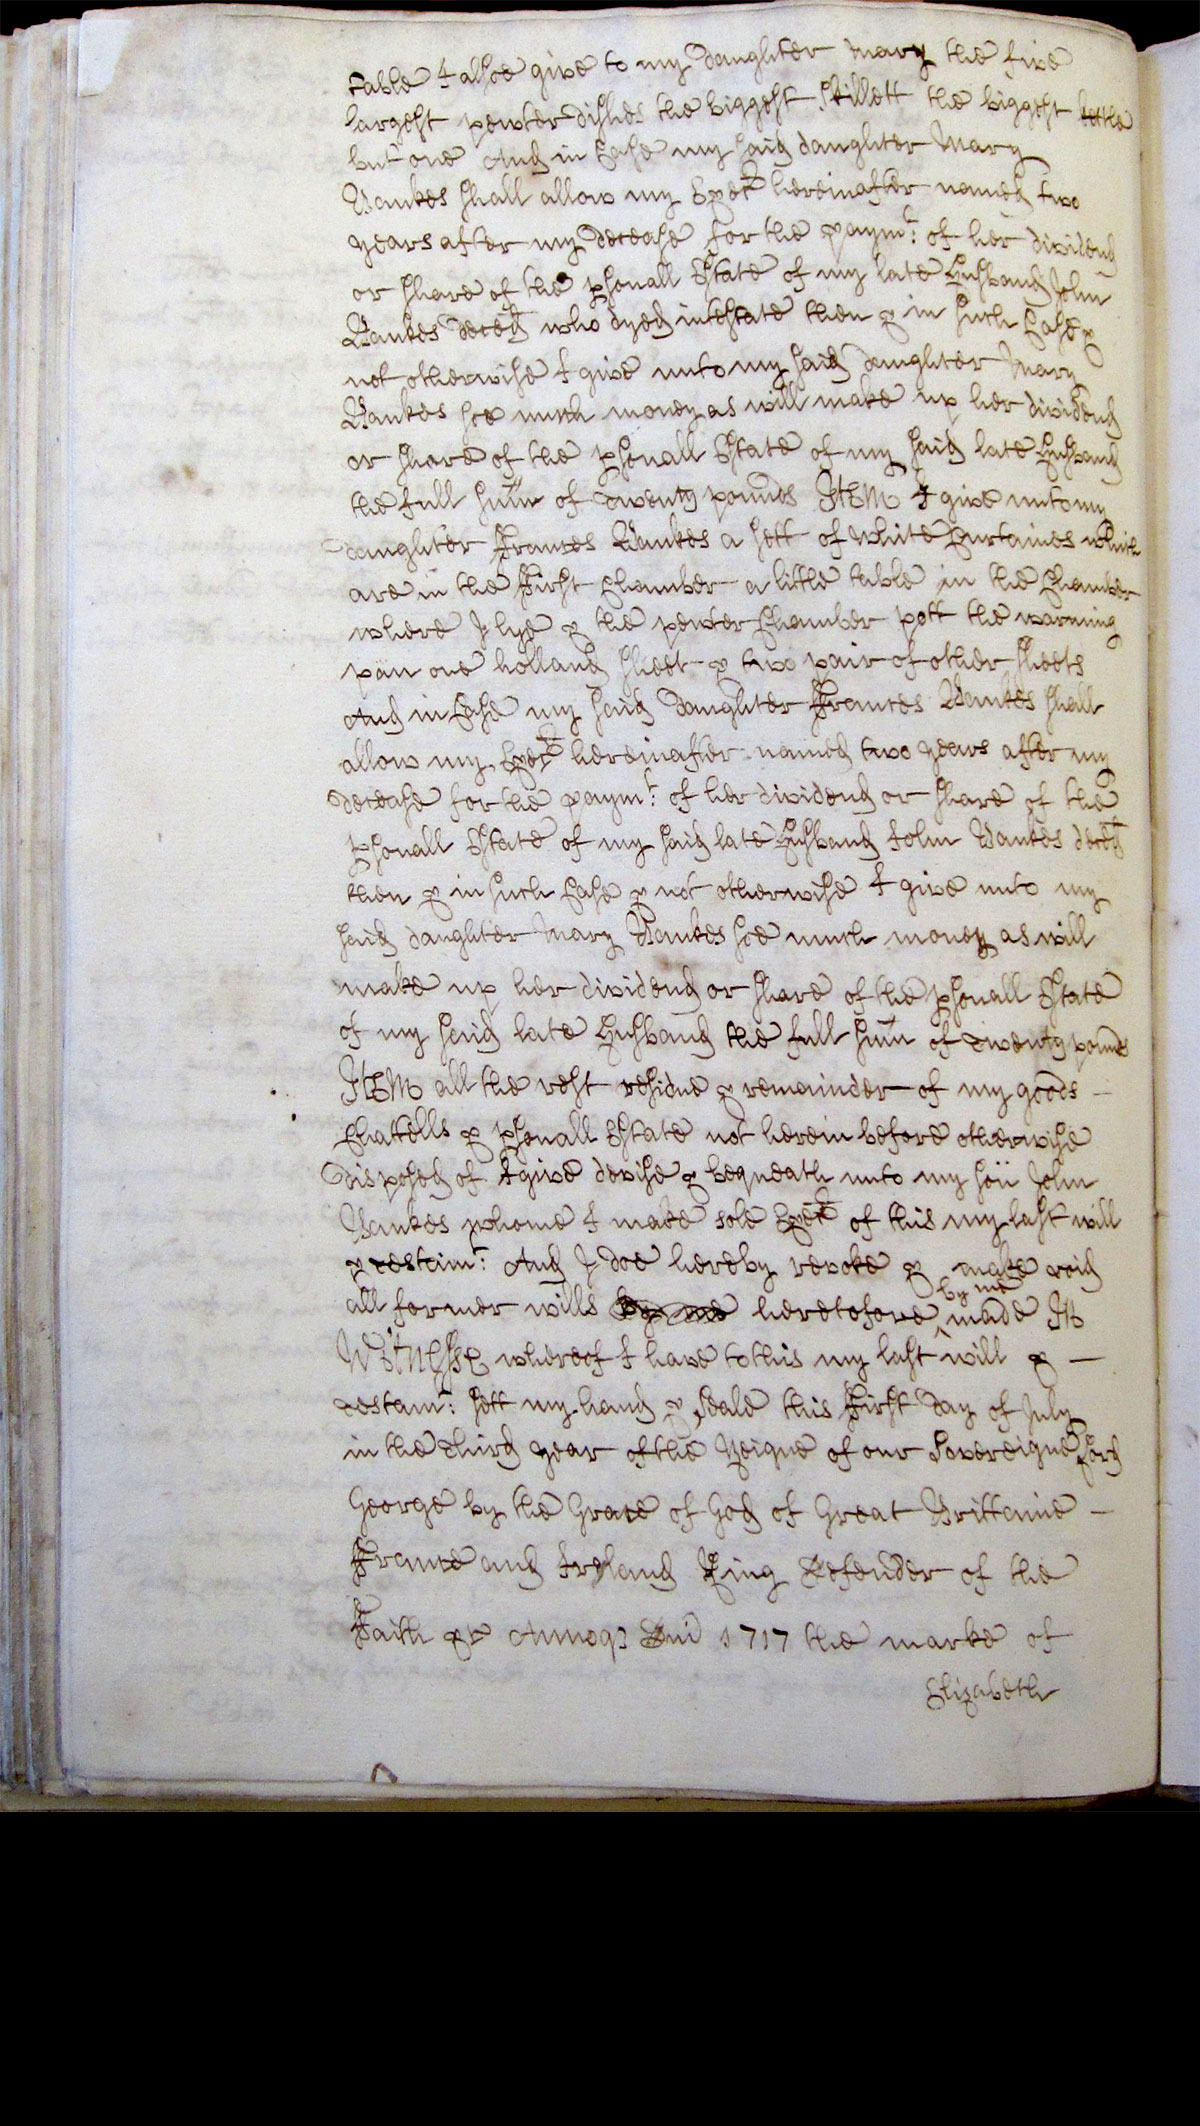 table I alsoe give to my daughter Mary the five
largest pewter dishes the biggest skillett the biggest kettle
but one And in Case my said daughter Mary
Bankes shall allow my Exec.r hereinafter named two
years after my decease for the paym.t of her dividend
or share of the psonall Estate of my late Husband John
Bankes deced who dyed intestate then & in such Case &
not otherwise I give unto my said daughter Mary
Bankes soe much money as will make up her dividend
or share of the psonall Estate of my said late Husband
the full sum of Twenty pounds ITEM I give unto my
daughter Frances Bankes a sett of white Curtaines which
are in the First Chamber a little table in the Chamber
where I lye & the pewter Chamber pott the warming
pan one holland sheet & two pair of other sheets
And in Case my said daughter Frances Bankes shall
allow my Exec.r hereinafter named two years after my
decease for the paym.t of her dividend or share of the
psonall Estate of my said late Husband John Bankes deced
then & in such Case & not otherwise I give unto my
said daughter Mary Bankes soe much money as will
make up her dividend or share of the psonall Estate
of my said late Husband the full sum of Twenty pounds
ITEM all the rest residue & remainder of my goods —
Chattells & psonall Estate not herein before otherwise
disposed of I give devise & bequeath unto my son John
Bankes whome I make sole Exec.r of this my last will
& testam.t And I doe hereby revoke & make void
all former wills by me heretofore by me made IN
WITNESSE whereof I have to this my last will & —
testam.t sett my hand & seale this First day of July
in the Third year of the Reigne of our Sovereigne Lord
George by the Grace of God of Great Brittaine —
France and Ireland King Defender of the
Faith &c Annoq Dni 1717 the marke of
Elizabeth